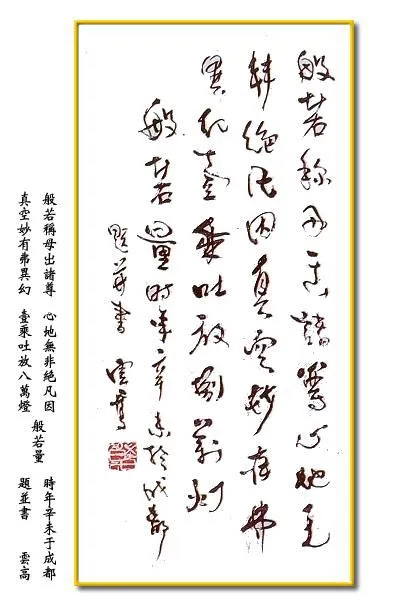 般若称母出諸尊心地无
非絕凡因真空妙有弗
異幻壹乘吐放捌萬灯
般若量時年辛未於成都
題并書 雲高
般若稱母出諸尊 心地無非絕凡因
真空妙有弗異幻 壹乘吐放八萬燈
般若量
時年辛未于成都
題並書 雲高